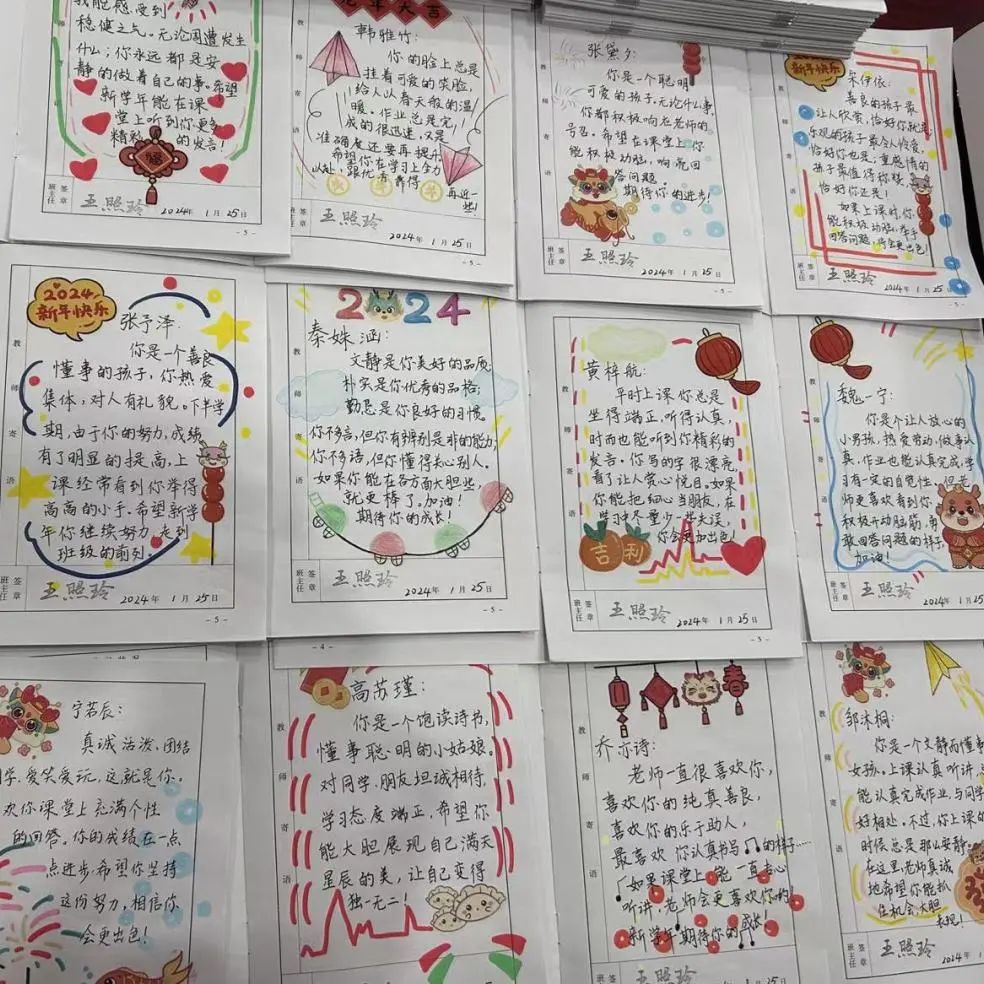 我能感受到
稳健之气。无论周遭发生
什么;你永远都是安
静的做着自己的事。希望
新学年能在课
堂上听到你更多
精彩的发言!
班主任签章
王照玲
2024年1月25日
-5-
龙年大吉
教师寄语
韩雅竹:
你的脸上总是
挂着可爱的笑脸,
给人以春天般的温
暖。作业总是完
成的很迅速,又是
准确度还要再提升
希望你在学习上全力
以赴,跟优秀靠得
再近一些!
班主任签章
王照玲
2024年1月25日
-5-
教师寄语
张黛夕:
你是一个聪明
可爱的孩子。无论什么事,
你都积极响应老师的
号召。希望在课堂上你
能积极动脑,响亮回
答问题。
期待你的进步!
班主任签章
王照玲
2024年1月25日
-5-
新年快乐
教师寄语
宋伊依:
善良的孩子最
让人欣赏,恰好你就是;
乐观的孩子最令人怜爱,
恰好你也是;重感情的
孩子最值得称赞,
恰好你还是!
如果上课时你
能积极动脑,举手
回答问题,将会更出色!
班主任签章
王照玲
2024年1月25日
-5-
2024
新年快乐
教师寄语
张予泽:
你是一个善良
懂事的孩子,你热爱
集体,对人有礼貌。下半学
期,由于你的努力,成绩
有了明显的提高,上
课经常看到你举得
高高的小手。希望新学
年你继续努力,走到
班级的前列。
班主任签章
王照玲
2024年1月25日
-5-
2024
教师寄语
秦姝涵:
文静是你美好的品质
朴实是你优秀的品格;
勤思是你良好的习惯
你不多言,但你有辨别是非的能力,
你不多语,但你懂得关心别人。
如果你能在各方面大胆些,
就更棒了。加油!
期待你的成长!
班主任签章
王照玲
2024年1月25日
-5-
教师寄语
黄梓航:
平时上课,你总是
坐得端正,听得认真,
时而也能听到你精彩的
发言。你写的字很漂亮,
看了让人赏心悦目。如果
你能把细心当朋友,在
学习中尽量少一些失误,
你会更加出色!
吉利
班主任签章
王照玲
2024年1月25日
-5-
教师寄语
魏一宁:
你是个让人放心的
小男孩,热爱劳动,做事认
真,作业也能认真完成,学
习有一定的自觉性,但老
师更喜欢看到你
积极开动脑筋,勇
敢回答问题的样子,
加油!
班主任签章
王照玲
2024年1月25日
宁若辰:
真诚活泼、团结
同学、爱笑爱玩,这就是你。
喜欢你课堂上充满个性
的回答。你的成绩在一点
点进步,希望你坚持
这份努力,相信你
会更出色!
-4-
教师寄语
高苏瑾:
你是一个饱读诗书,
懂事聪明的小姑娘。
对同学、朋友坦诚相待,
学习态度端正,希望你
能大胆展现自己满天
星辰的美,让自己变得
独一无二!
春
教师寄语
乔亦诗:
老师一直很喜欢你,
喜欢你的纯真善良,
喜欢你的乐于助人,
最喜欢你认真书写的样子
如果课堂上能一直专心
听讲,老师会更喜欢你的!
新学年期待你的成长!
班主任签章
王照玲
2024年1月25日
教师寄语
邹沐桐:
你是一个文静而懂事
女孩。上课认真听讲,
能认真完成作业,与同学
好相处。不过,你上课的
时候总是那么安静。
在这里,老师真诚
地希望你能抓
住机会,大胆
表现!
班主任签章
王照玲
2024年1月25日